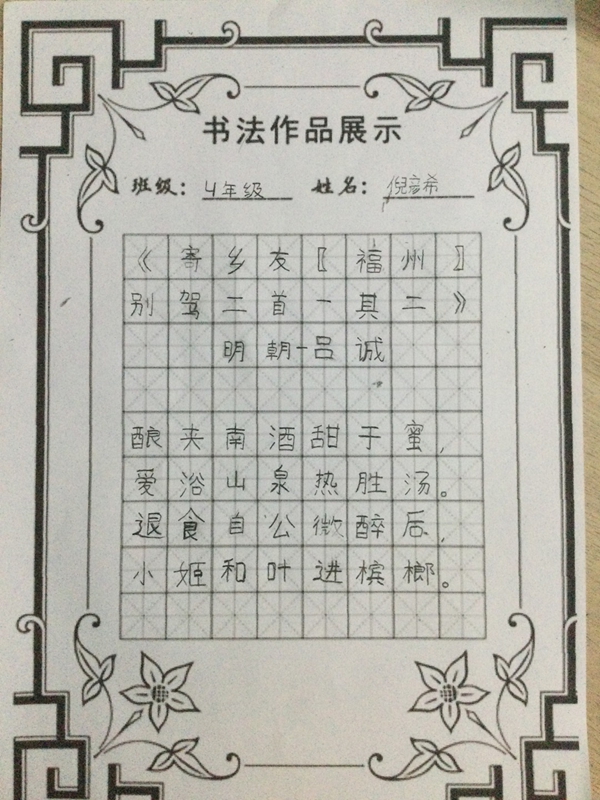 书法作品展示
班级：4年级 姓名：倪彦希
《寄乡友〖福州〗
别驾二首一其二》
明朝-吕诚
酿来南酒甜于蜜，
爱浴山泉热胜汤。
退食自公微醉后，
小姬和叶进槟榔。